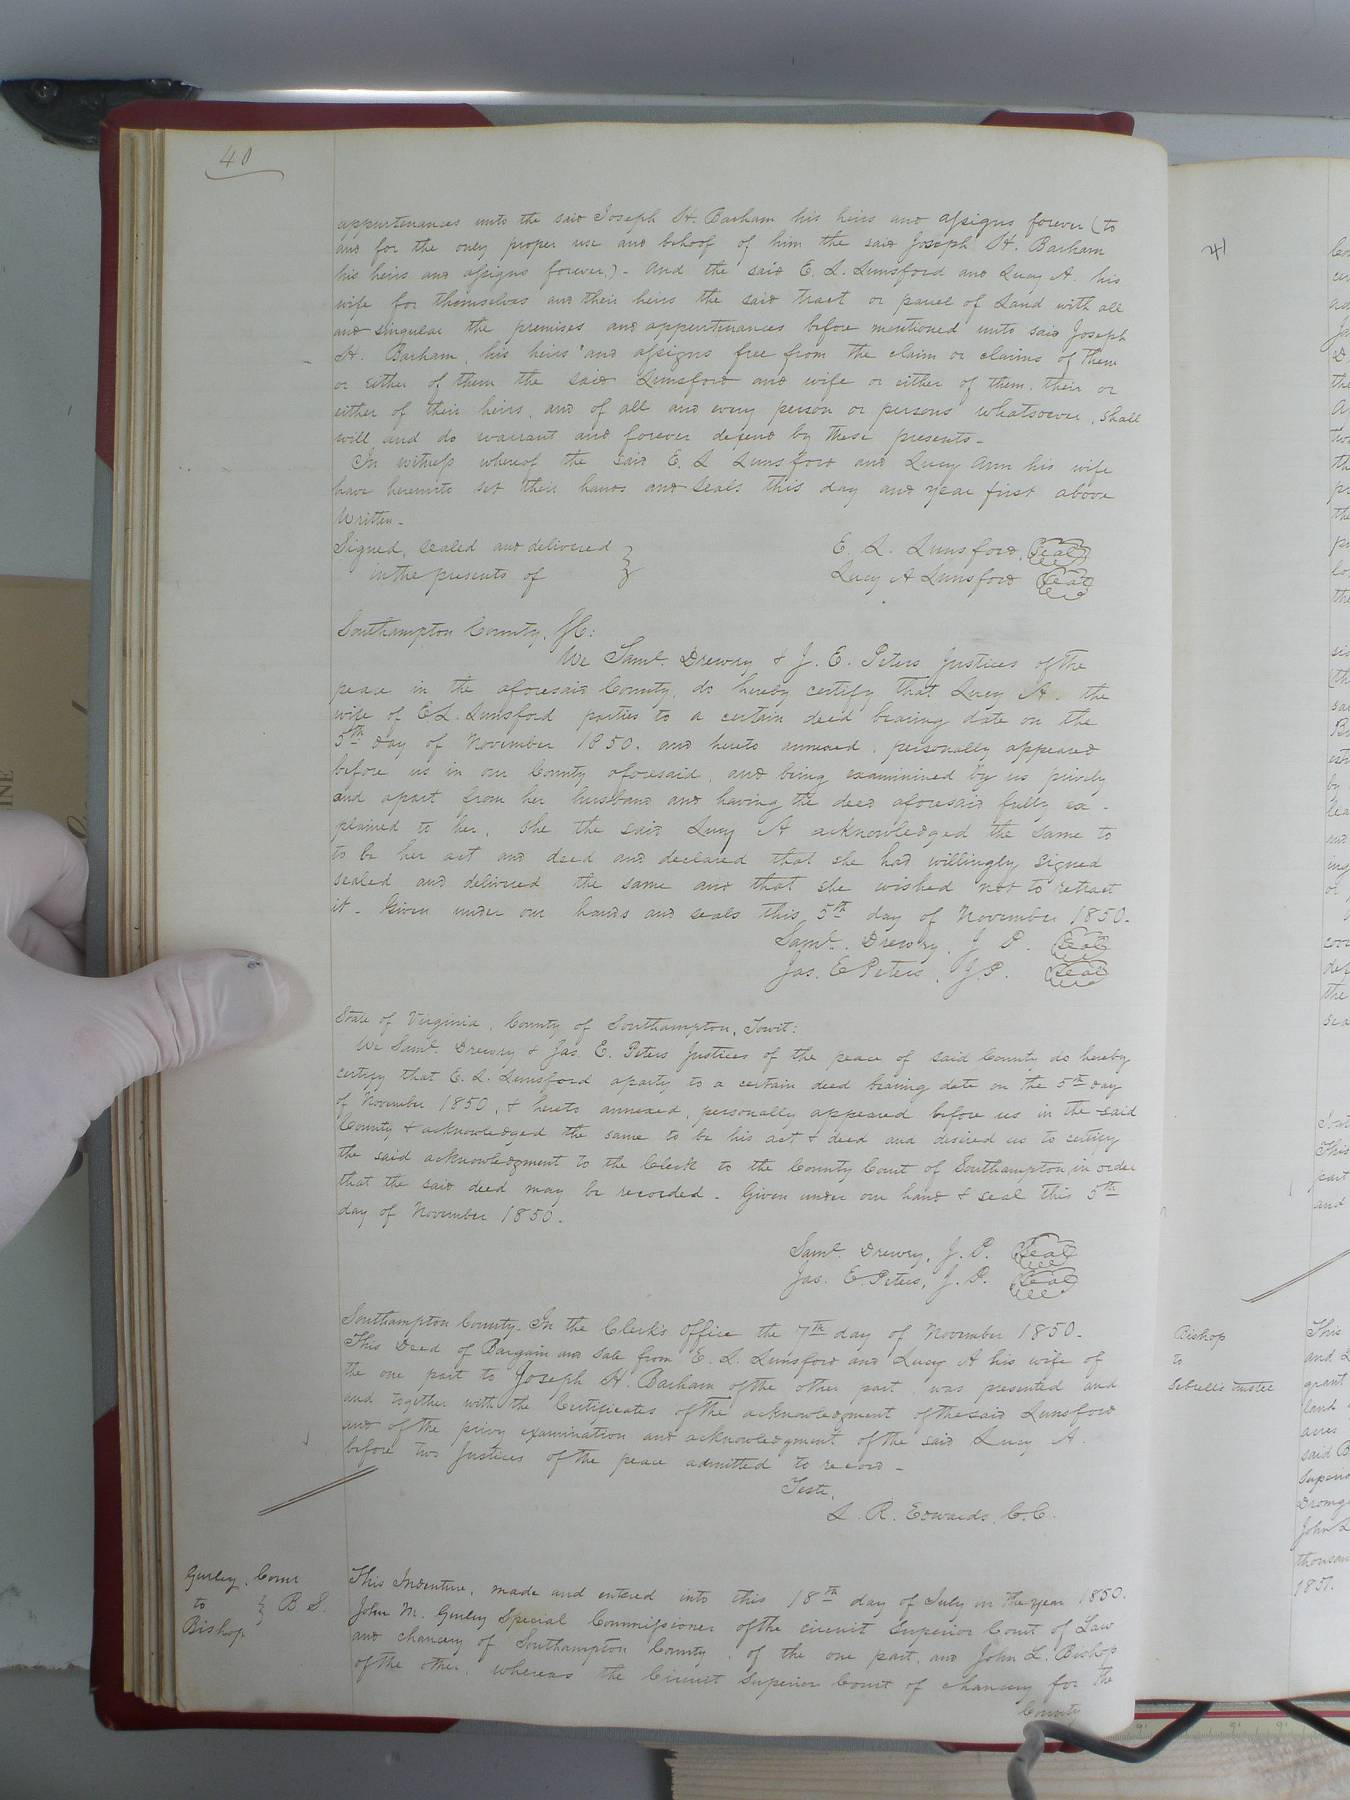 40
appurtenances unto the said Joseph H. Barham his heirs and assigns forever (to
and for the only proper use and behoof of him the said Joseph H. Barham
his heirs and assigns forever,) - and the said E. L. Lunsford and Lucy A. his
wife for themselves and their heirs the said tract or parcel of Land with all
and singular the premises and appurtenances before mentioned unto said Joseph
H. Barham, his heirs and assigns free from the claim or claims of them
or either of them the said Lunsford and wife or either of them, their or
either of their heirs, and of all and every person or persons whatsoever, shall
will and do warrant and forever defend by these presents -
In witness whereof the said E. L Lunsford and Lucy Ann his wife
have hereunto set their hands and seals this day and year first above
Written -
Signed, sealed and delivered
in the presents of
E. L. Lunsford, Seal
Lucy A Lunsford Seal
Southampton County, SC:
We Saml. Drewry & J. E. Peters Justices of the
peace in the aforesaid County, do hereby certify that Lucy A. the
wife of E L. Lunsford parties to a certain deed bearing date on the
5th day of November 1850. and hereto annexed, personally appeared
before us in our County aforesaid, and being examinined by us privily
and apart from her husband and having the deed aforesaid fully ex-
plained to her, she the said Lucy A acknowledged the same to
to be her act and deed and declared that she had willingly signed
sealed and delivered the same and that she wished not to retract
it - Given under our hands and seals this 5th day of November 1850.
Saml. Drewry, J P. Seal
Jas. E Peters, J.P. Seal
State of Virginia, County of Southampton, Towit:
We Saml. Drewry & Jas. E. Peters Justices of the peace of said County do hereby
certify that E. L. Lunsford a party to a certain deed bearing date on the 5th day
of November 1850, & hereto annexed, personally appeared before us in the said
County & acknowledged the same to be his act & deed and desired us to certify
the said acknowledgment to the Clerk to the County Court of Southampton, in order
that the said deed may be recorded - Given under our hand & seal this 5th
day of November 1850.
Saml. Drewry, J. P. Seal
Jas. E Peters, J. P. Seal
Southampton County - In the Clerk's Office the 7th day of November 1850.
This Deed of Bargain and Sale from E. L. Lunsford and Lucy A his wife of
the one part to Joseph H. Barham of the other part, was presented and
and together with the Certificates of the acknowledgment of the said Lunsford
and of the privy examination and acknowledgment of the said Lucy A.
before two Justices of the peace admitted to record -
Teste,
L. R. Edwards, C.C.
Gurley, Comr
to B S.
Bishop
This Indenture, made and entered into this 18th day of July in the year 1850.
John M. Gurley Special Commissioner of the circuit Superior Court of Law
and chancery of Southampton County, of the one part, and John L. Bishop
of the other, whereas the Circuit Superior Court of chancery for the
County
41
Bishop
to
Sebrell's trustee
This
and
grant
land
acres
said B
Superio
John L
thousan
1851.